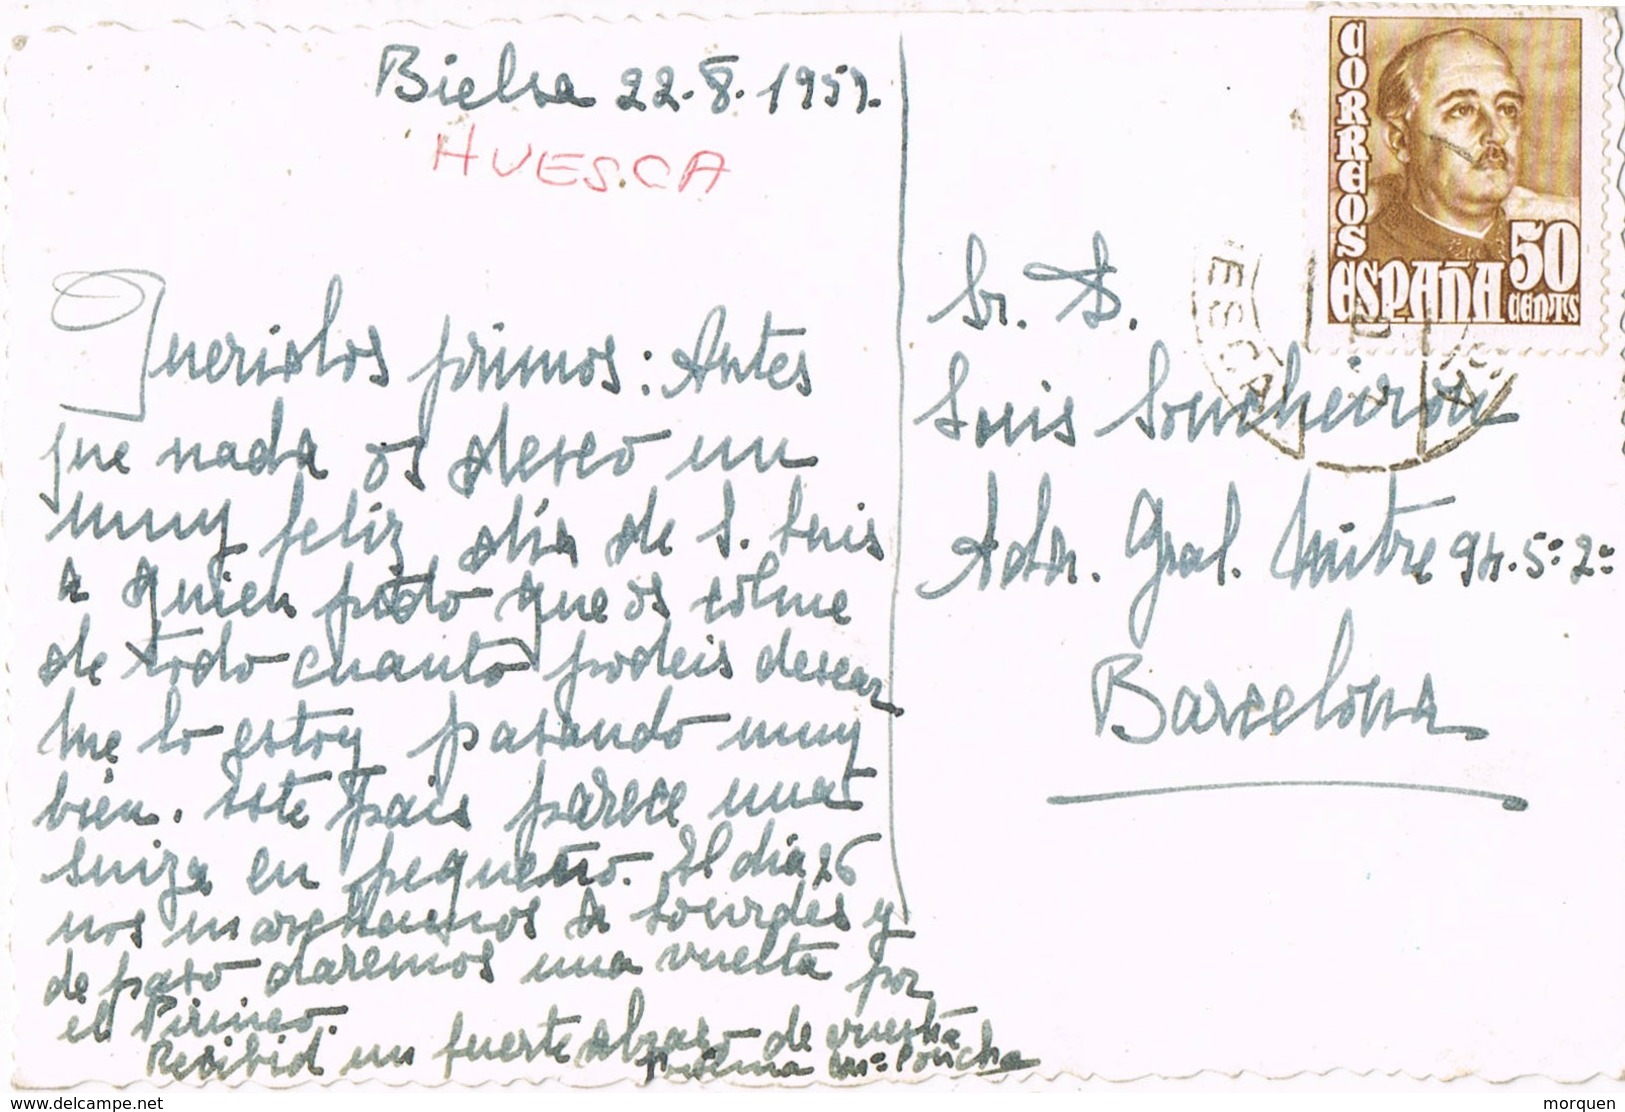 Bielsa 22-8-1957.
HUESCA
Queridos primos: Antes
que nada os deseo un
muy feliz día de S. Luis
a quien pido que os colme
de todo cuanto podeis desear
Me lo estoy pasando muy
bien. Este Pais parece una
suiza en pequeño. El día 26
nos marchamos a Lourdes y
de paso daremos una vuelta por
el Pirineo.
Recibid un fuerte abrazo de vuestra
prima Mª Concha
CORREOS
ESPAÑA
50
CENTS
Sr. D.
Luis Soucheiron
Avda. Gral. Mitre 94-5º-2º
Barcelona
www.delcampe.net
morquen